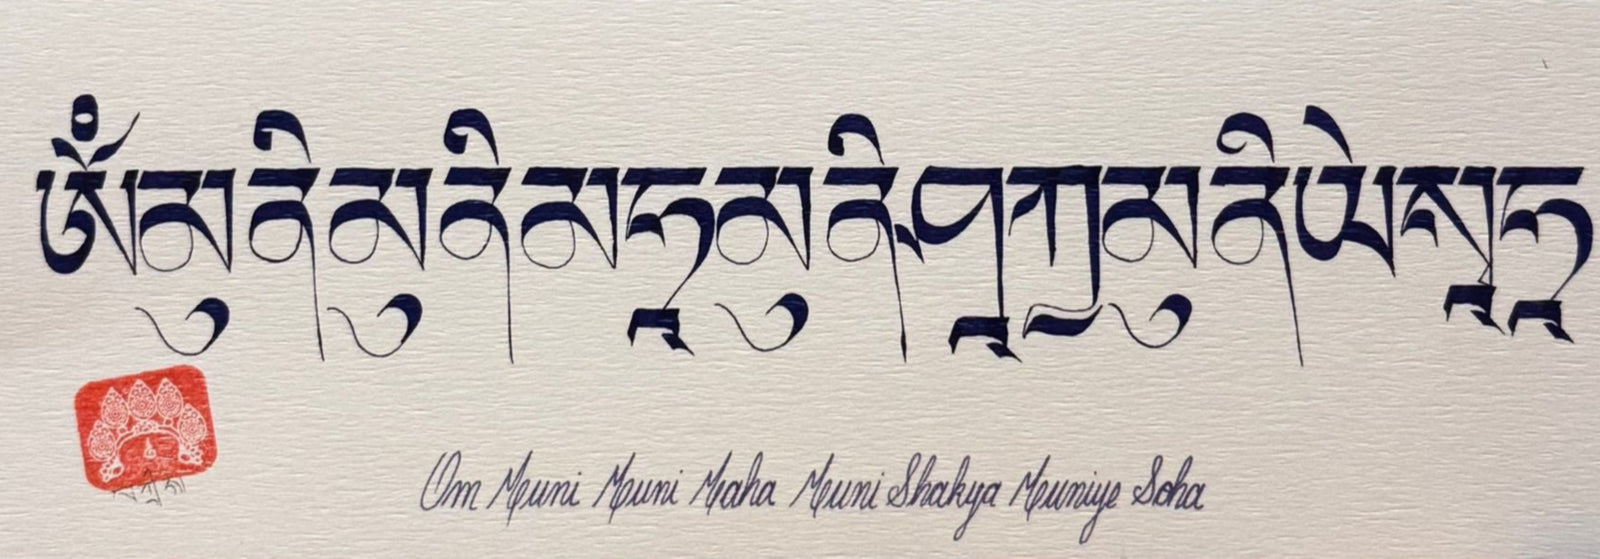 ཨོཾམུནིམུནིམཧཱམུནིཤཱཀྱམུནིཡེསྭཱཧཱ
Om Muni Muni Maha Muni Shakya Muniye Soha